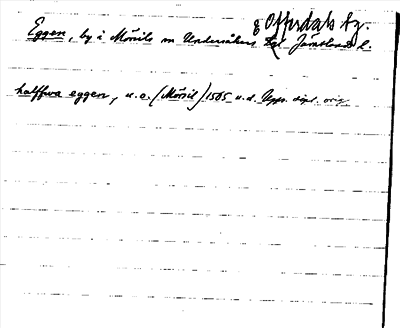 & Offerdals tg.
Eggen, by i Mörsils sn Undersåkers tgl Jämtlands l.
halffwa eggen, u.o. (Mörsil) 1565 u.d. Upps. dipl. orig